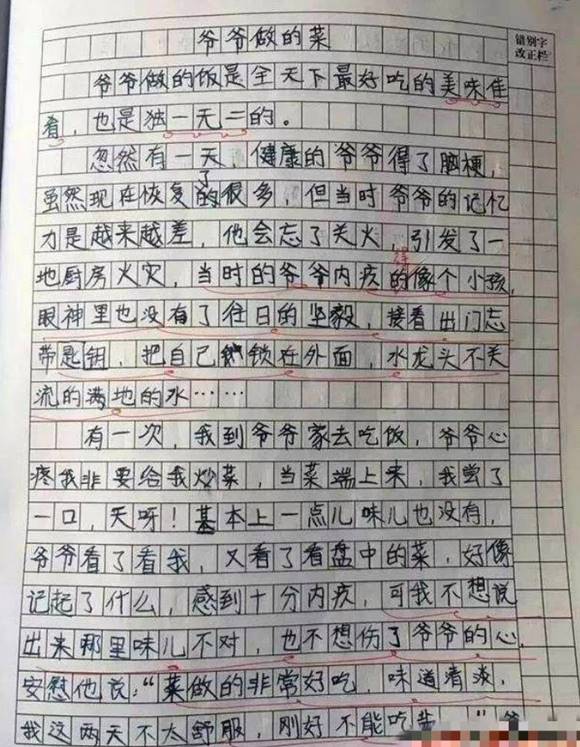 爷爷做的菜
错别字
改正栏
爷爷做的饭是全天下最好吃的美味佳
肴，也是独一无二的。
忽然有一天，健康的爷爷得了脑梗，
虽然现在恢复了的很多，但当时爷爷的记忆
力是越来越差，他会忘了关火，引发了一
地厨房火灾，当时的爷爷内疚的得像个小孩，
眼神里也没有了往日的坚毅，接着出门忘
带匙钥，把自己锁在外面，水龙头不关
流的满地的水……
有一次，我到爷爷家去吃饭，爷爷心
疼我非要给我炒菜，当菜端上来，我尝了
一口，天呀！基本上一点儿味儿也没有，
爷爷看了看我，又看了看盘中的菜，好像
记起了什么，感到十分内疚，可我不想说
出来那里味儿不对，也不想伤了爷爷的心，
安慰他说：“菜做的非常好吃，味道清淡，
我这两天不太舒服，刚好不能吃